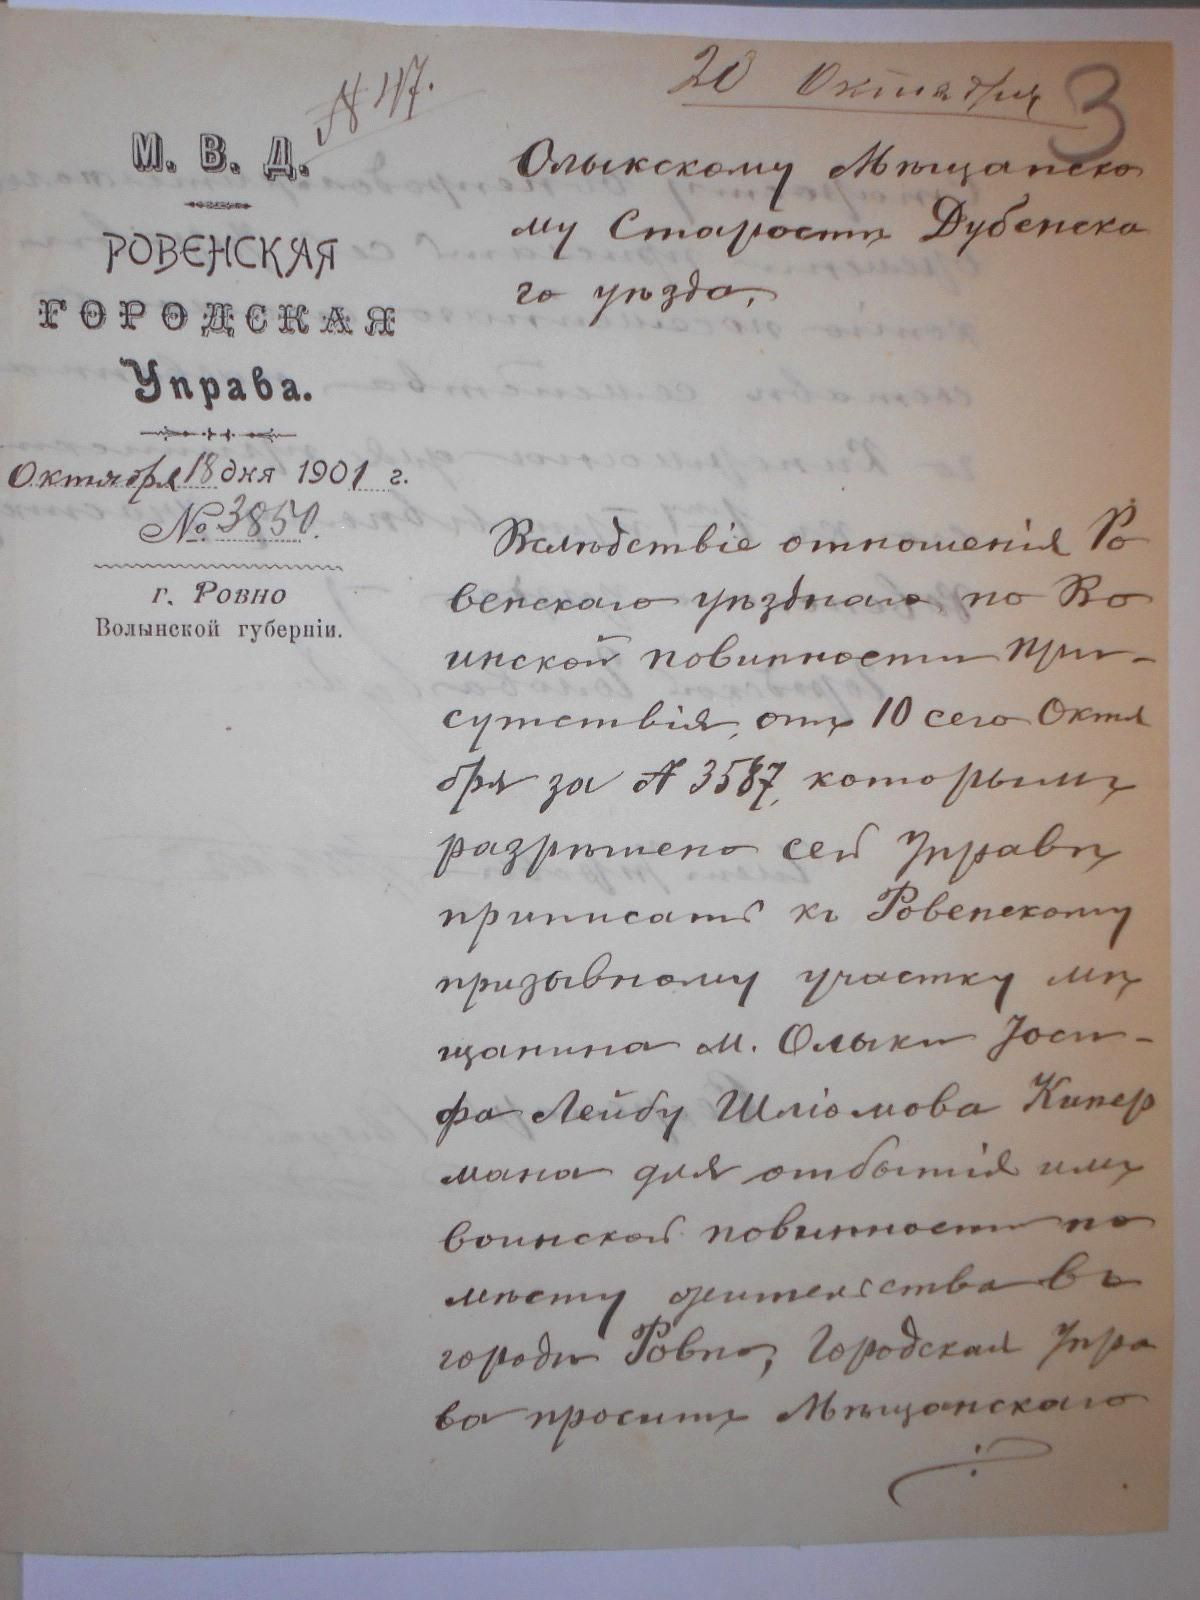 № 117.
20 Октября
3
М. В. Д.
РОВЕНСКАЯ
ГОРОДСКАЯ
Управа.
Октября 18 дня 1901 г.
№ 3850.
г. Ровно
Волынской губерніи.
Олыкскому Мѣщанско
му Старостѣ Дубенска
го уѣзда,
Вслѣдствіе отношенія Ро
венскаго уѣзднаго по Во
инской повинности при-
сутствія, отъ 10 сего Октя
бря за № 3587, которымъ
разрѣшено сей Управѣ
приписать къ Ровенскому
призывному участку мѣ
щанина м. Олыки Іоси-
фа Лейбу Шліомова Кипер
мана для отбытія имъ
воинской повинности по
мѣсту жительства въ
городѣ Ровно, Городская Упра
ва проситъ Мѣщанскаго